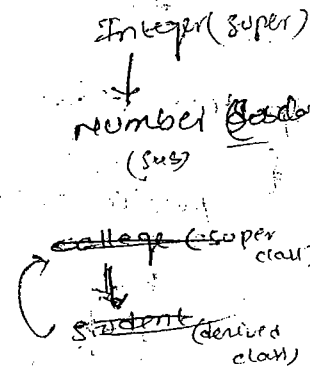 Integer (super)
Number
(sub)
college (super
class)
student (derived
class)